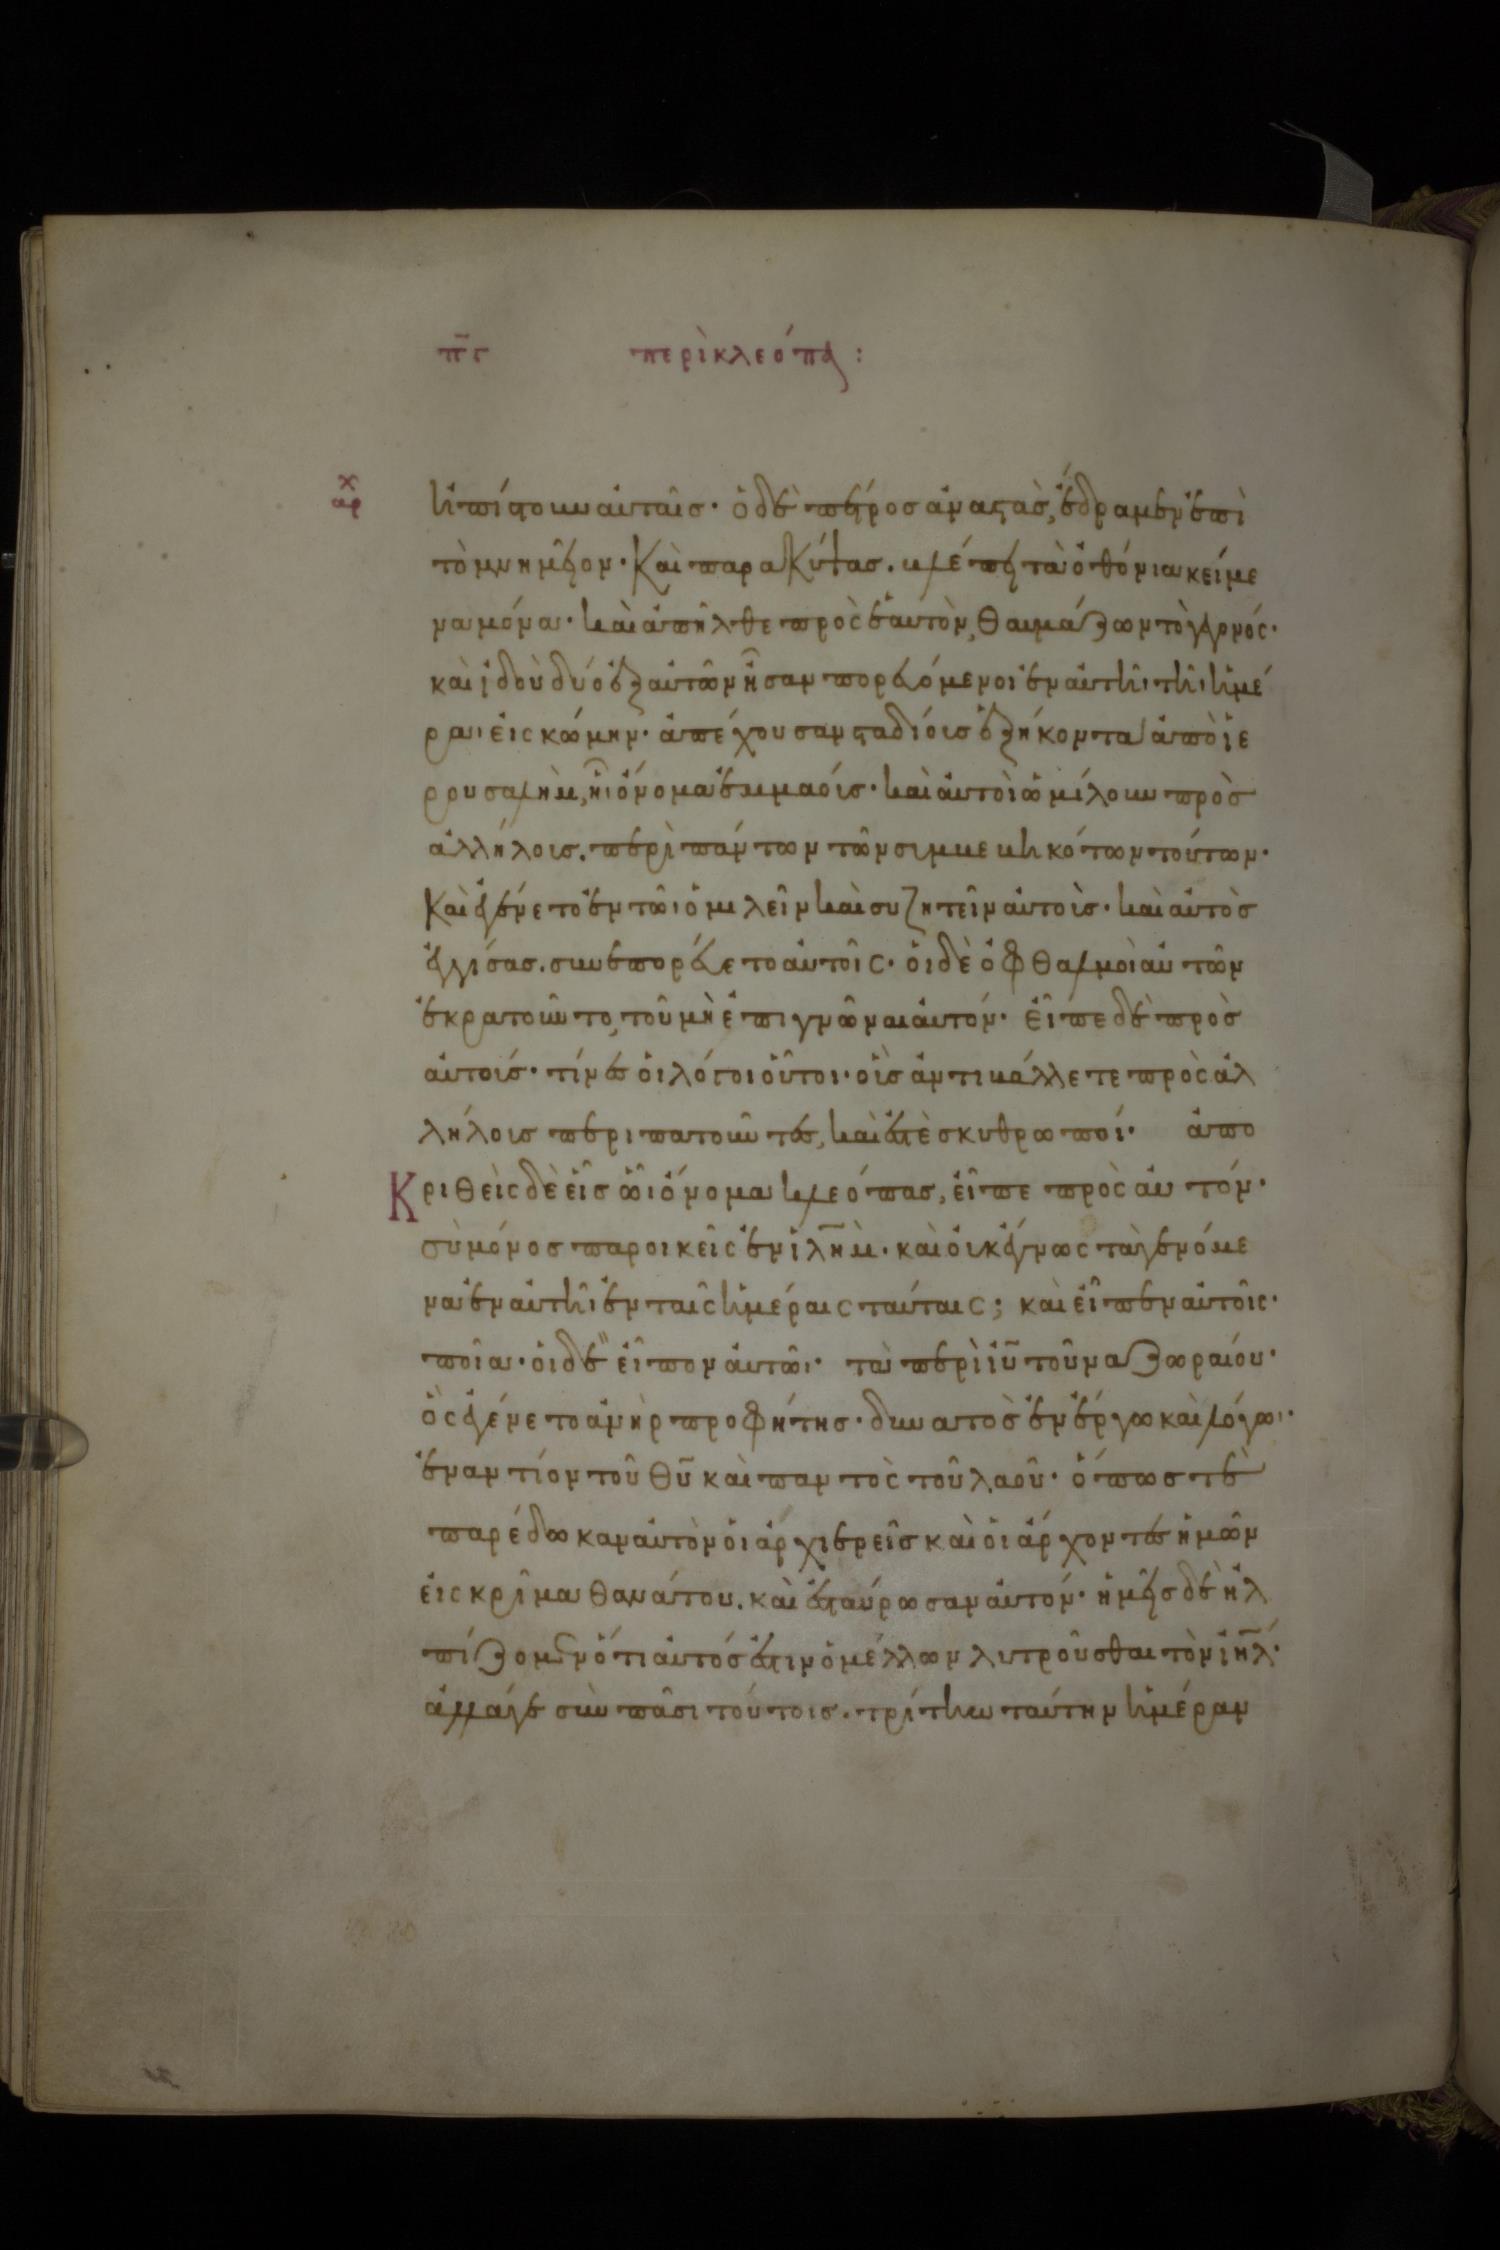 π̅γ περὶ κλεόπα :
αρχ
ἠπίστουν αὐταῖς· ὁ δὲ πέτρος ἀναστὰς, ἔδραμεν ἐπὶ
τὸ μνημεῖον· καὶ παρακύψας. βλέπει τὰ ὀθόνια κείμε
να μόνα· καὶ ἀπῆλθε πρὸς ἑαυτὸν, θαυμάζων τὸ γεγονός·
καὶ ἰδοὺ δύο ἐξ αὐτῶν ἦσαν πορευόμενοι ἐν αὐτῆι τῆι ἡμέ
ραι εἰς κώμην· ἀπέχουσαν σταδίους ἑξήκοντα ἀπὸ ἱε
ρουσαλὴμ, ἧι ὄνομα ἐμμαούς· καὶ αὐτοὶ ὡμίλουν πρὸς
ἀλλήλους. περὶ πάντων τῶν συμβεβηκότων τούτων·
Καὶ ἐγένετο ἐν τῶι ὁμιλεῖν καὶ συζητεῖν αὐτοὺς· καὶ αὐτὸς
ἐγγίσας. συνεπορεύετο αὐτοῖς· οἱ δὲ ὀφθαλμοὶ αὐτῶν
ἐκρατοῦντο, τοῦ μὴ ἐπιγνῶναι αὐτόν· εἶπε δὲ πρὸς
αὐτούς· τίνες οἱ λόγοι οὗτοι· οὓς ἀντιβάλλετε πρὸς ἀλ
λήλους περιπατοῦντες, καὶ ἐστὲ σκυθρωποί· ἀπο
Κριθεὶς δὲ εἷς ὧι ὄνομα κλεόπας, εἶπε πρὸς αὐτόν·
σὺ μόνος παροικεῖς ἐν ἰλη̅μ· καὶ οὐκ ἔγνως τὰ γενόμε
να ἐν αὐτῆι ἐν ταῖς ἡμέραις ταύταις; καὶ εἶπεν αὐτοῖς·
ποῖα· οἱ δὲ εἶπον αὐτῶι· τὰ περὶ ἰυ̅ τοῦ ναζωραίου·
ὃς ἐγένετο ἀνὴρ προφήτης· δυνατὸς ἐν ἔργω καὶ λόγωι·
ἐναντίον τοῦ θυ̅ καὶ παντὸς τοῦ λαοῦ· ὅπως τὲ
παρέδωκαν αὐτὸν οἱ ἀρχιερεῖς καὶ οἱ ἄρχοντες ἡμῶν
εἰς κρῖμα θανάτου. καὶ ἐσταύρωσαν αὐτόν· ἡμεῖς δὲ ἠλ
πίζομεν ὅτι αὐτός ἐστιν ὁ μέλλων λυτροῦσθαι τὸν ἰη̅λ·
ἀλλάγε σὺν πᾶσι τούτοις. τρίτην ταύτην ἡμέραν